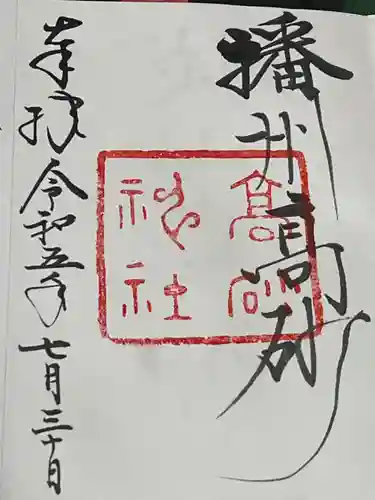 播州高砂
高砂
神社
奉拝
令和五年
七月三十日